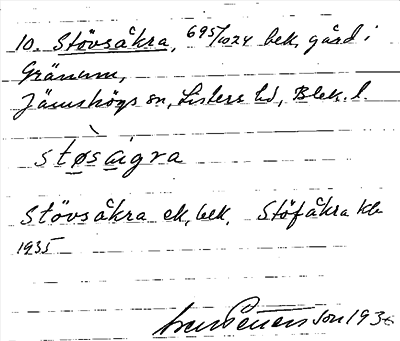 10. Stövsåkra, 695/1024 bek, gård i
Gränum,
Jämshögs sn, Listers hd, Blek. l.
støsaigra
Stövsåkra ek, bek. Stöfåkra kb
1935
Petersson 193